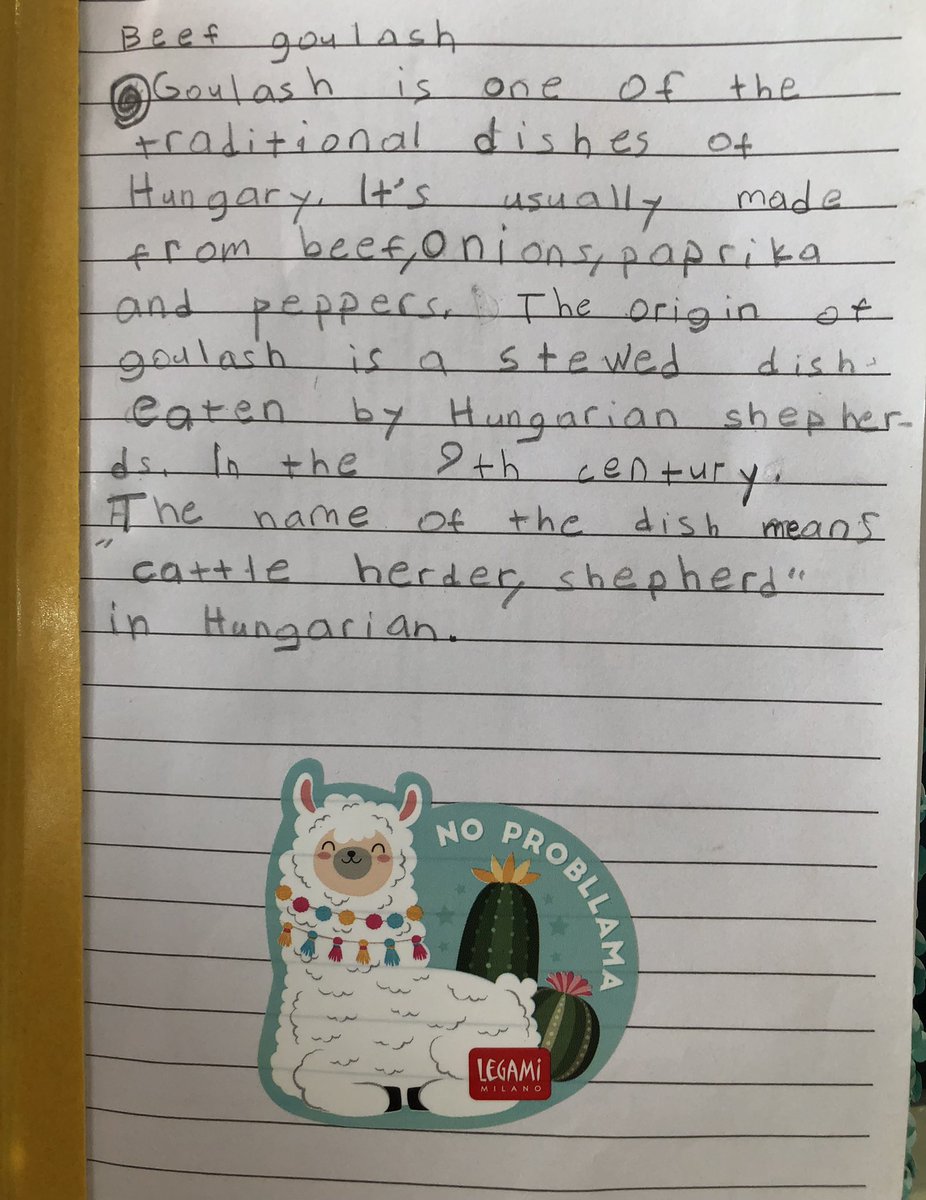 Beef goulash
Goulash is one of the
traditional dishes of
Hungary. It's usually made
from beef, onions, paprika
and peppers. The origin of
goulash is a stewed dish
eaten by Hungarian shepher-
ds. In the 9th century.
The name of the dish means
"cattle herder, shepherd"
in Hungarian.
NO PROBLLAMA
LEGAMi
MILANO